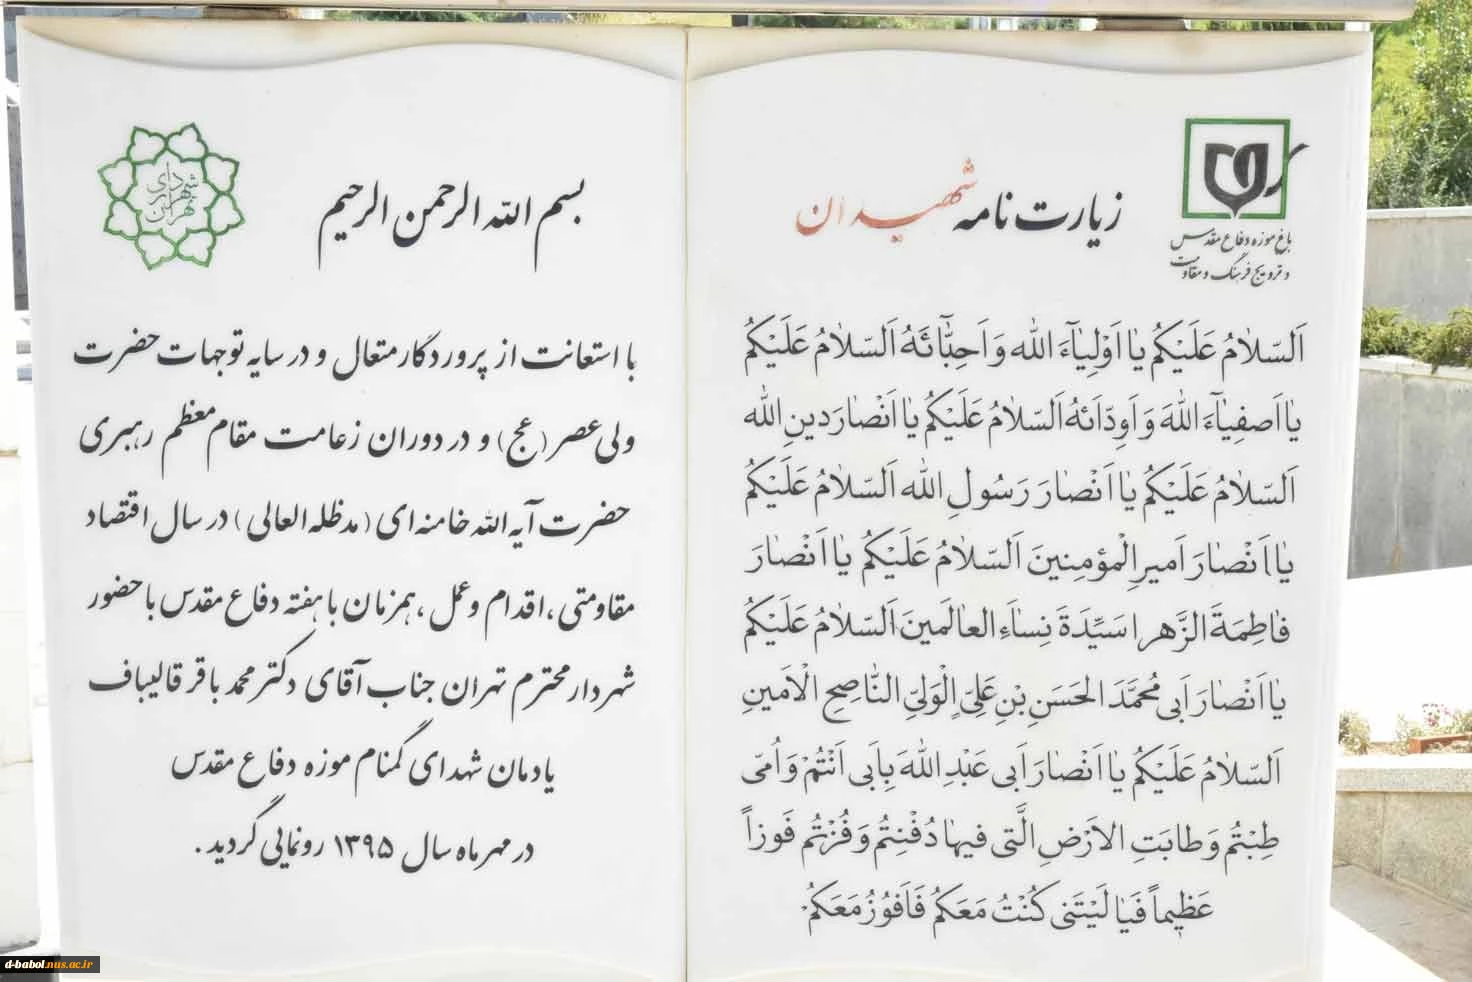 باغ موزه دفاع مقدس
و ترویج فرهنگ و مقاومت
زیارت نامه شهیدان
اَلسّلامُ عَلَیْکُم یٰا اَوْلِیٰآءَ اللّه وَ اَحِبّٰائَهُ اَلسّلامُ عَلَیْکُم
یٰا اَصفِیٰآءَ اللّهَ وَ اَوِدّٰائهُ اَلسّلامُ عَلَیْکُم یٰا اَنْصٰارَ دینِ اللّه
اَلسّلامُ عَلَیْکُم یٰا اَنْصٰارَ رَسُولِ اللّه اَلسّلامُ عَلَیْکُم
یٰا اَنْصٰارَ اَمیرِ الْمؤمِنینَ اَلسّلامُ عَلَیْکُم یٰا اَنْصٰارَ
فٰاطِمَةَ الزَّهرا سَیِّدَةَ نِسٰاءِ العٰالَمینَ اَلسّلامُ عَلَیْکُم
یٰا اَنْصٰارَ اَبی مُحمَّدَ الحَسَنِ بْنِ عَلِیٍّ الْوَلیِّ النّٰاصِحِ الْاَمینِ
اَلسّلامُ عَلَیْکُم یٰا اَنْصٰارَ اَبی عَبْدِ اللّهَ بِاَبی اَنْتُمْ وَ اُمّی
طِبْتُم وَ طٰابَتِ الاَرْضِ الَّتی فیهٰا دُفْنِتُم وَ فُزْتُم فَوزاً
عَظیماً فَیٰا لَیْتَنی کُنْتُ مَعَکُم فَاَفوُزُ مَعَکُمْ.
شهرداری تهران
بسم الله الرحمن الرحیم
با استعانت از پروردگار متعال و در سایه توجهات حضرت
ولی عصر (عج) و در دوران زعامت مقام معظم رهبری
حضرت آیه الله خامنه ای (مدظله العالی) در سال اقتصاد
مقاومتی ، اقدام و عمل ، همزمان با هفته دفاع مقدس با حضور
شهردار محترم تهران جناب آقای دکتر محمد باقر قالیباف
یادمان شهدای گمنام موزه دفاع مقدس
در مهرماه سال ۱۳۹۵ رونمایی گردید .
d-babol.nus.ac.ir